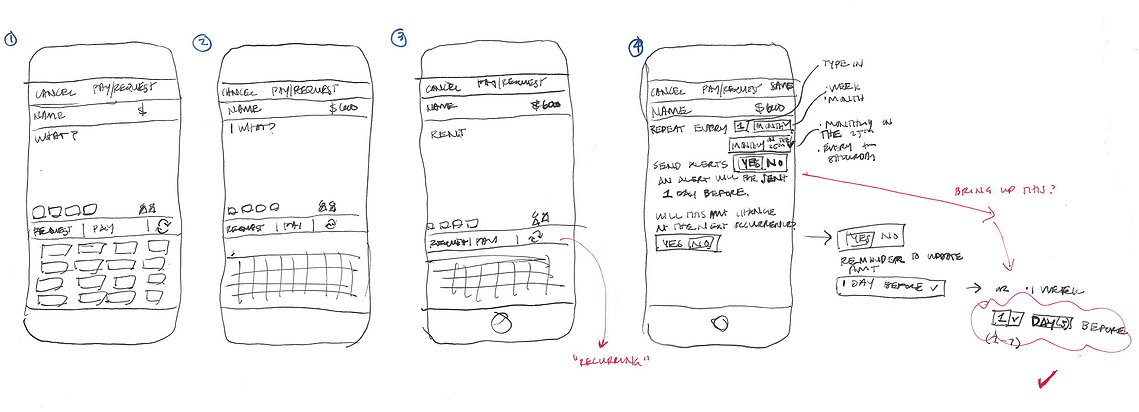 1
CANCEL PAY/REQUEST
NAME $
WHAT?
REQUEST | PAY |
2
CANCEL PAY/REQUEST
NAME $600
WHAT?
REQUEST | PAY |
3
CANCEL PAY/REQUEST
NAME $600
RENT
REQUEST | PAY |
"RECURRING"
4
CANCEL PAY/REQUEST SAVE
NAME $600
REPEAT EVERY 1 MONTH
MONTHLY ON THE 25TH
SEND ALERTS YES NO
AN ALERT WILL BE SENT
1 DAY BEFORE.
WILL THIS AMT CHANGE
AT THE NEXT OCCURRENCE?
YES NO
TYPE IN
· WEEK
· MONTH
· MONTHLY ON
THE 25TH
· EVERY
SATURDAY
YES NO
REMINDER TO UPDATE
AMT
1 DAY BEFORE
BRING UP THIS?
OR · 1 WEEK
1 DAY(S) BEFORE
(1-7)